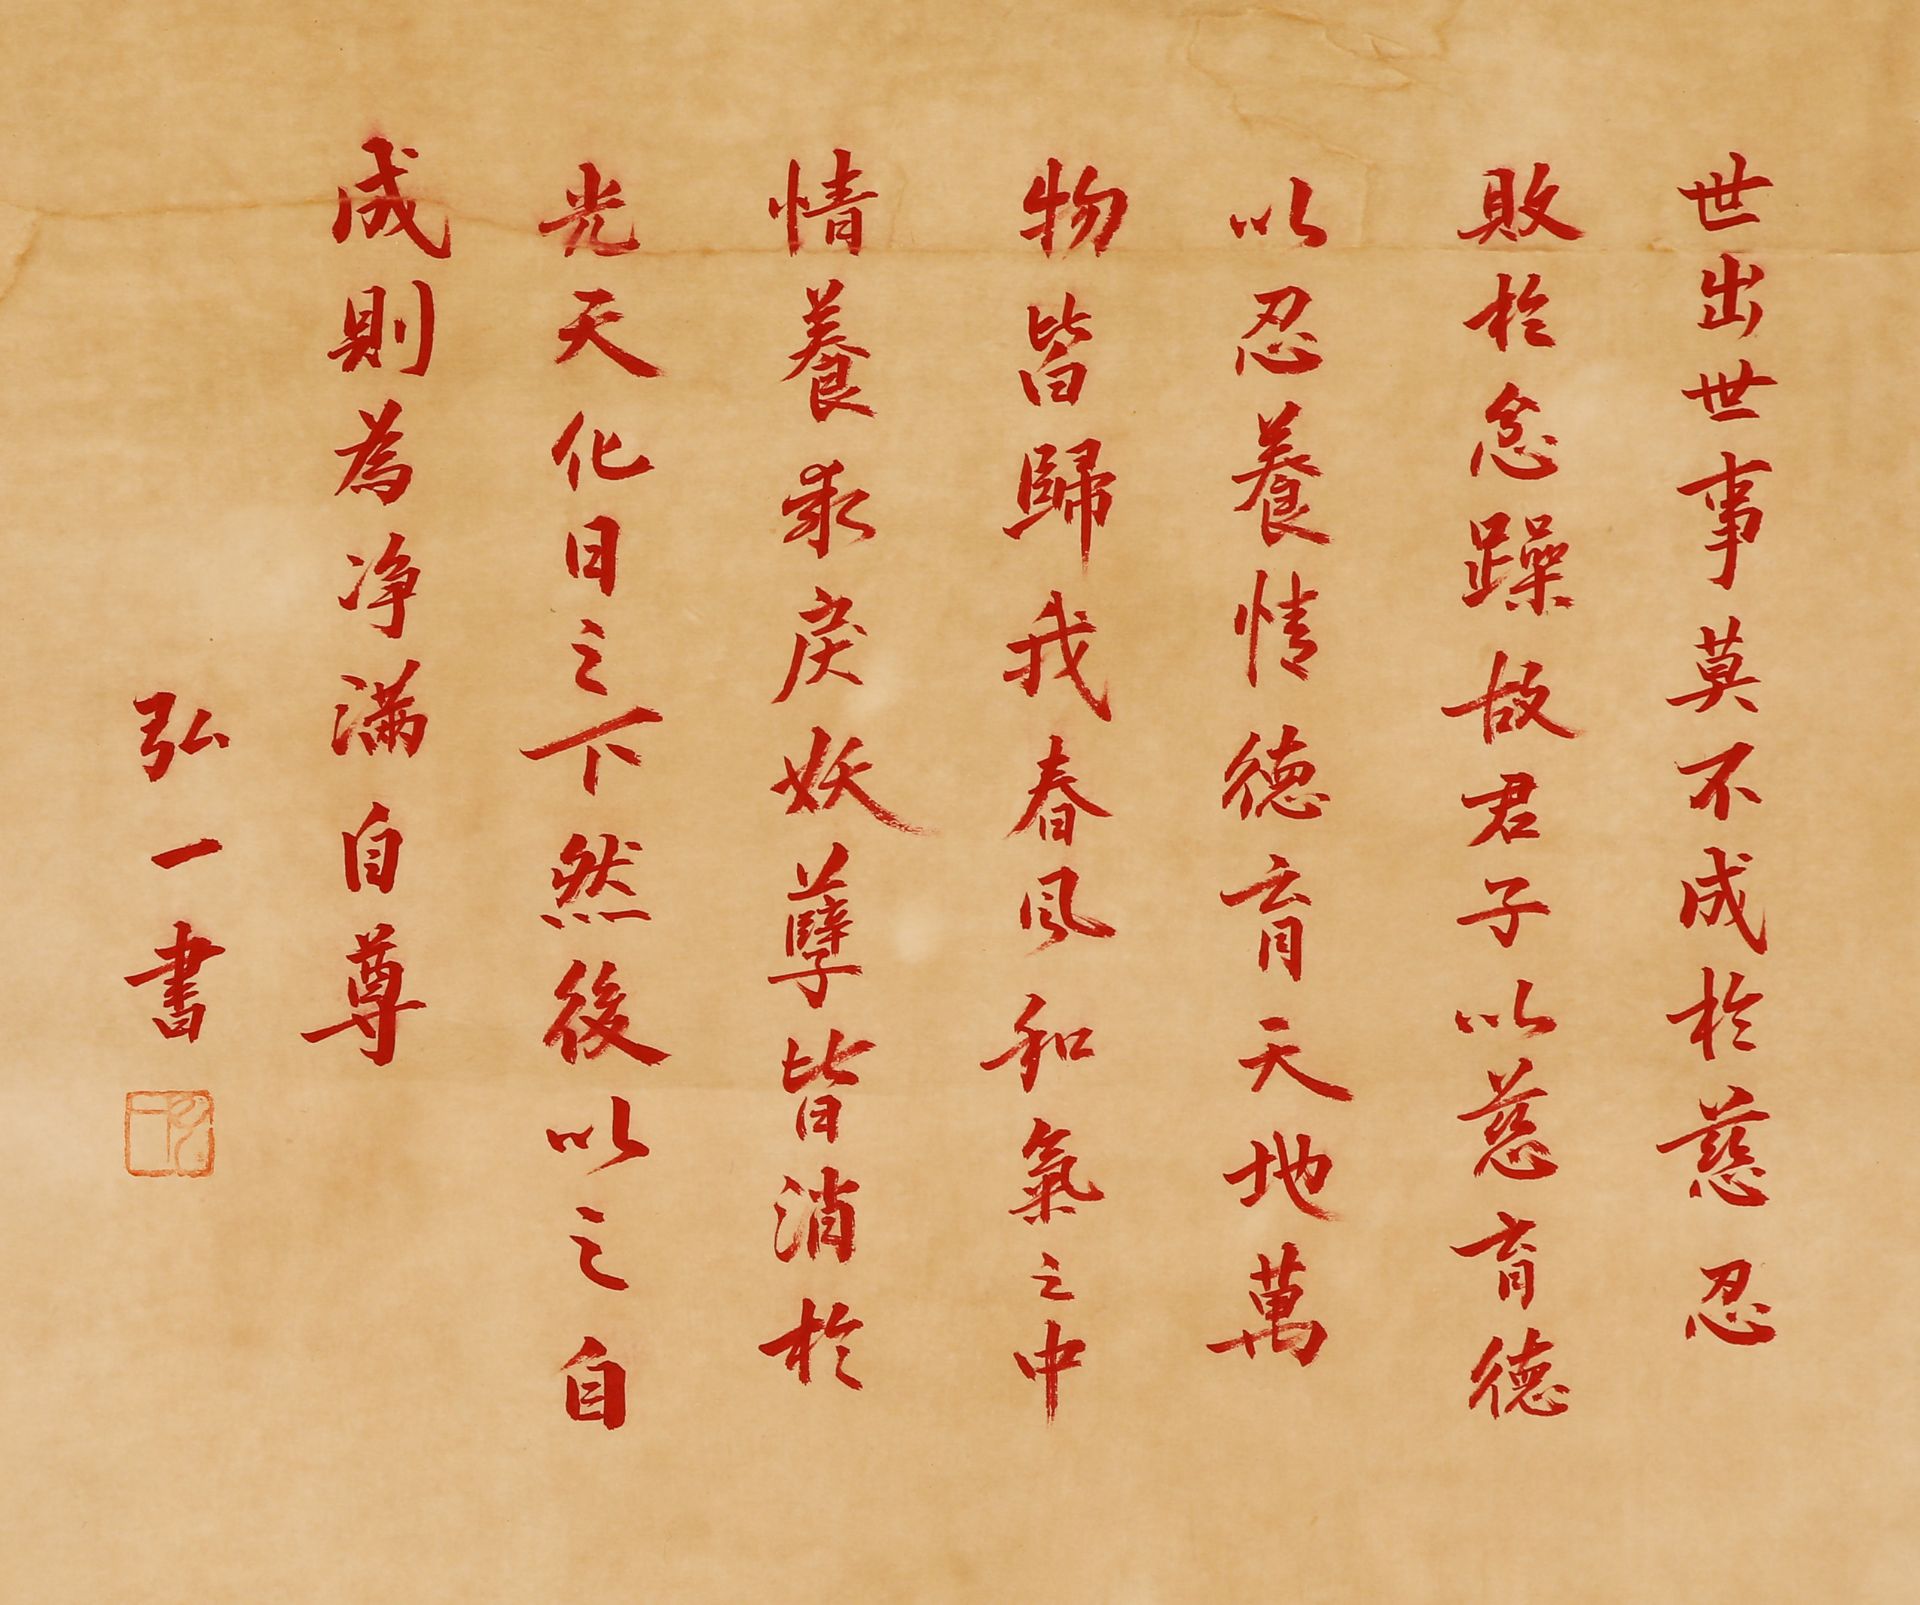 世出世事莫不成於慈忍
敗於忿躁故君子以慈育德
以忍養情德育天地萬
物皆歸我春風和氣之中
情養乖戾妖孽皆消於
光天化日之下然後以之自
成則為净滿自尊
弘一書